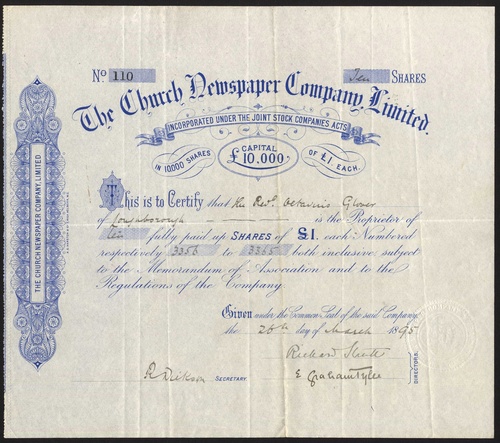 No 110 Ten SHARES
The Church Newspaper Company, Limited.
INCORPORATED UNDER THE JOINT STOCK COMPANIES ACTS
CAPITAL
IN 10000 SHARES £10.000 OF £1. EACH.
This is to Certify that the Revd. Octavius Glover
of Loughborough is the Proprietor of
Ten fully paid up SHARES of £1. each Numbered
respectively 3356 to 3365 both inclusive subject
to the Memorandum of Association and to the
Regulations of the Company
Given under the Common Seal of the said Company,
the 26th day of March 1895
Richard
E Graham
SECRETARY.
DIRECTORS.
THE CHURCH NEWSPAPER COMPANY, LIMITED